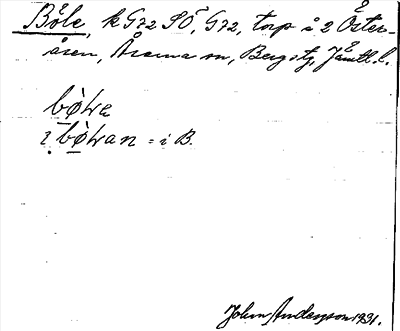 Böle, k G72 SÖ, G72, torp i 2 Öster-
åsen, Årsma sn, Bergs tg, Jämtl. l.
bø̀ɫa
i bø̀ɫan = i B.
John Anderson 1931.